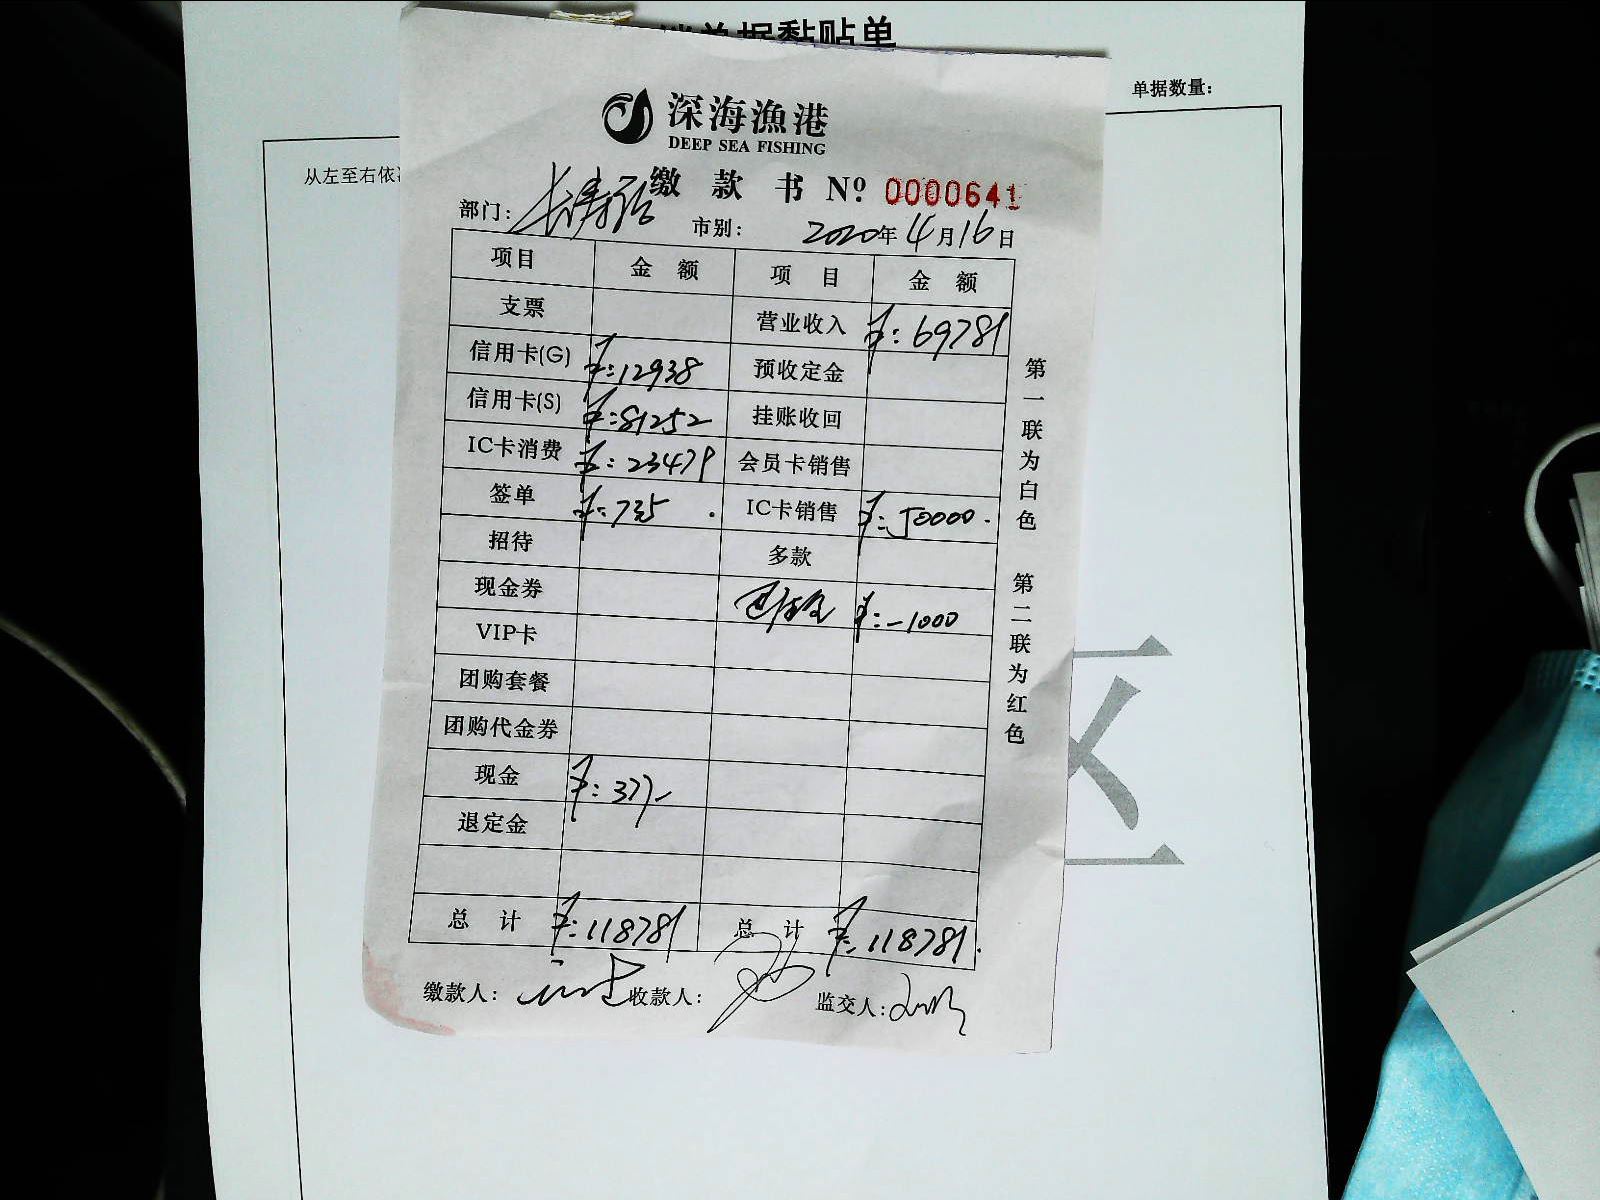 单据黏贴单
单据数量：
从左至右依
深海漁港
DEEP SEA FISHING
缴款书 Nº 0000641
部门：
市别： 2020年4月16日
项目 金额 项目 金额
支票 营业收入 ¥:69781
信用卡(G) ¥:12938 预收定金
信用卡(S) ¥:81252 挂账收回
IC卡消费 ¥:23479 会员卡销售
签单 ¥:735 . IC卡销售 ¥:50000.
招待 多款
现金券 ¥:-1000
VIP卡
团购套餐
团购代金券
现金 ¥:377-
退定金
总计 ¥:118781 总计 ¥:118781.
缴款人： 收款人： 监交人：
第一联为白色
第二联为红色
区